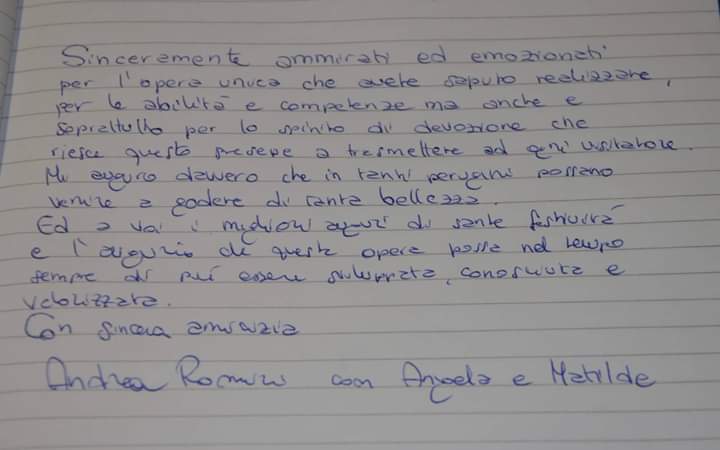 Sinceramente ammirati ed emozionati
per l'opera unica che avete saputo realizzare,
per le abilità e competenze ma anche e
soprattutto per lo spirito di devozione che
riesce questo presepe a trasmettere ad ogni visitatore.
Mi auguro davvero che in tanti perugini possano
venire a godere di tanta bellezza.
Ed a voi i migliori auguri di sante festività
e l'augurio che questa opera possa nel tempo
sempre di più essere, conosciuta e
valorizzata.
Con sincera amicizia
Andrea con Angela e Matilde